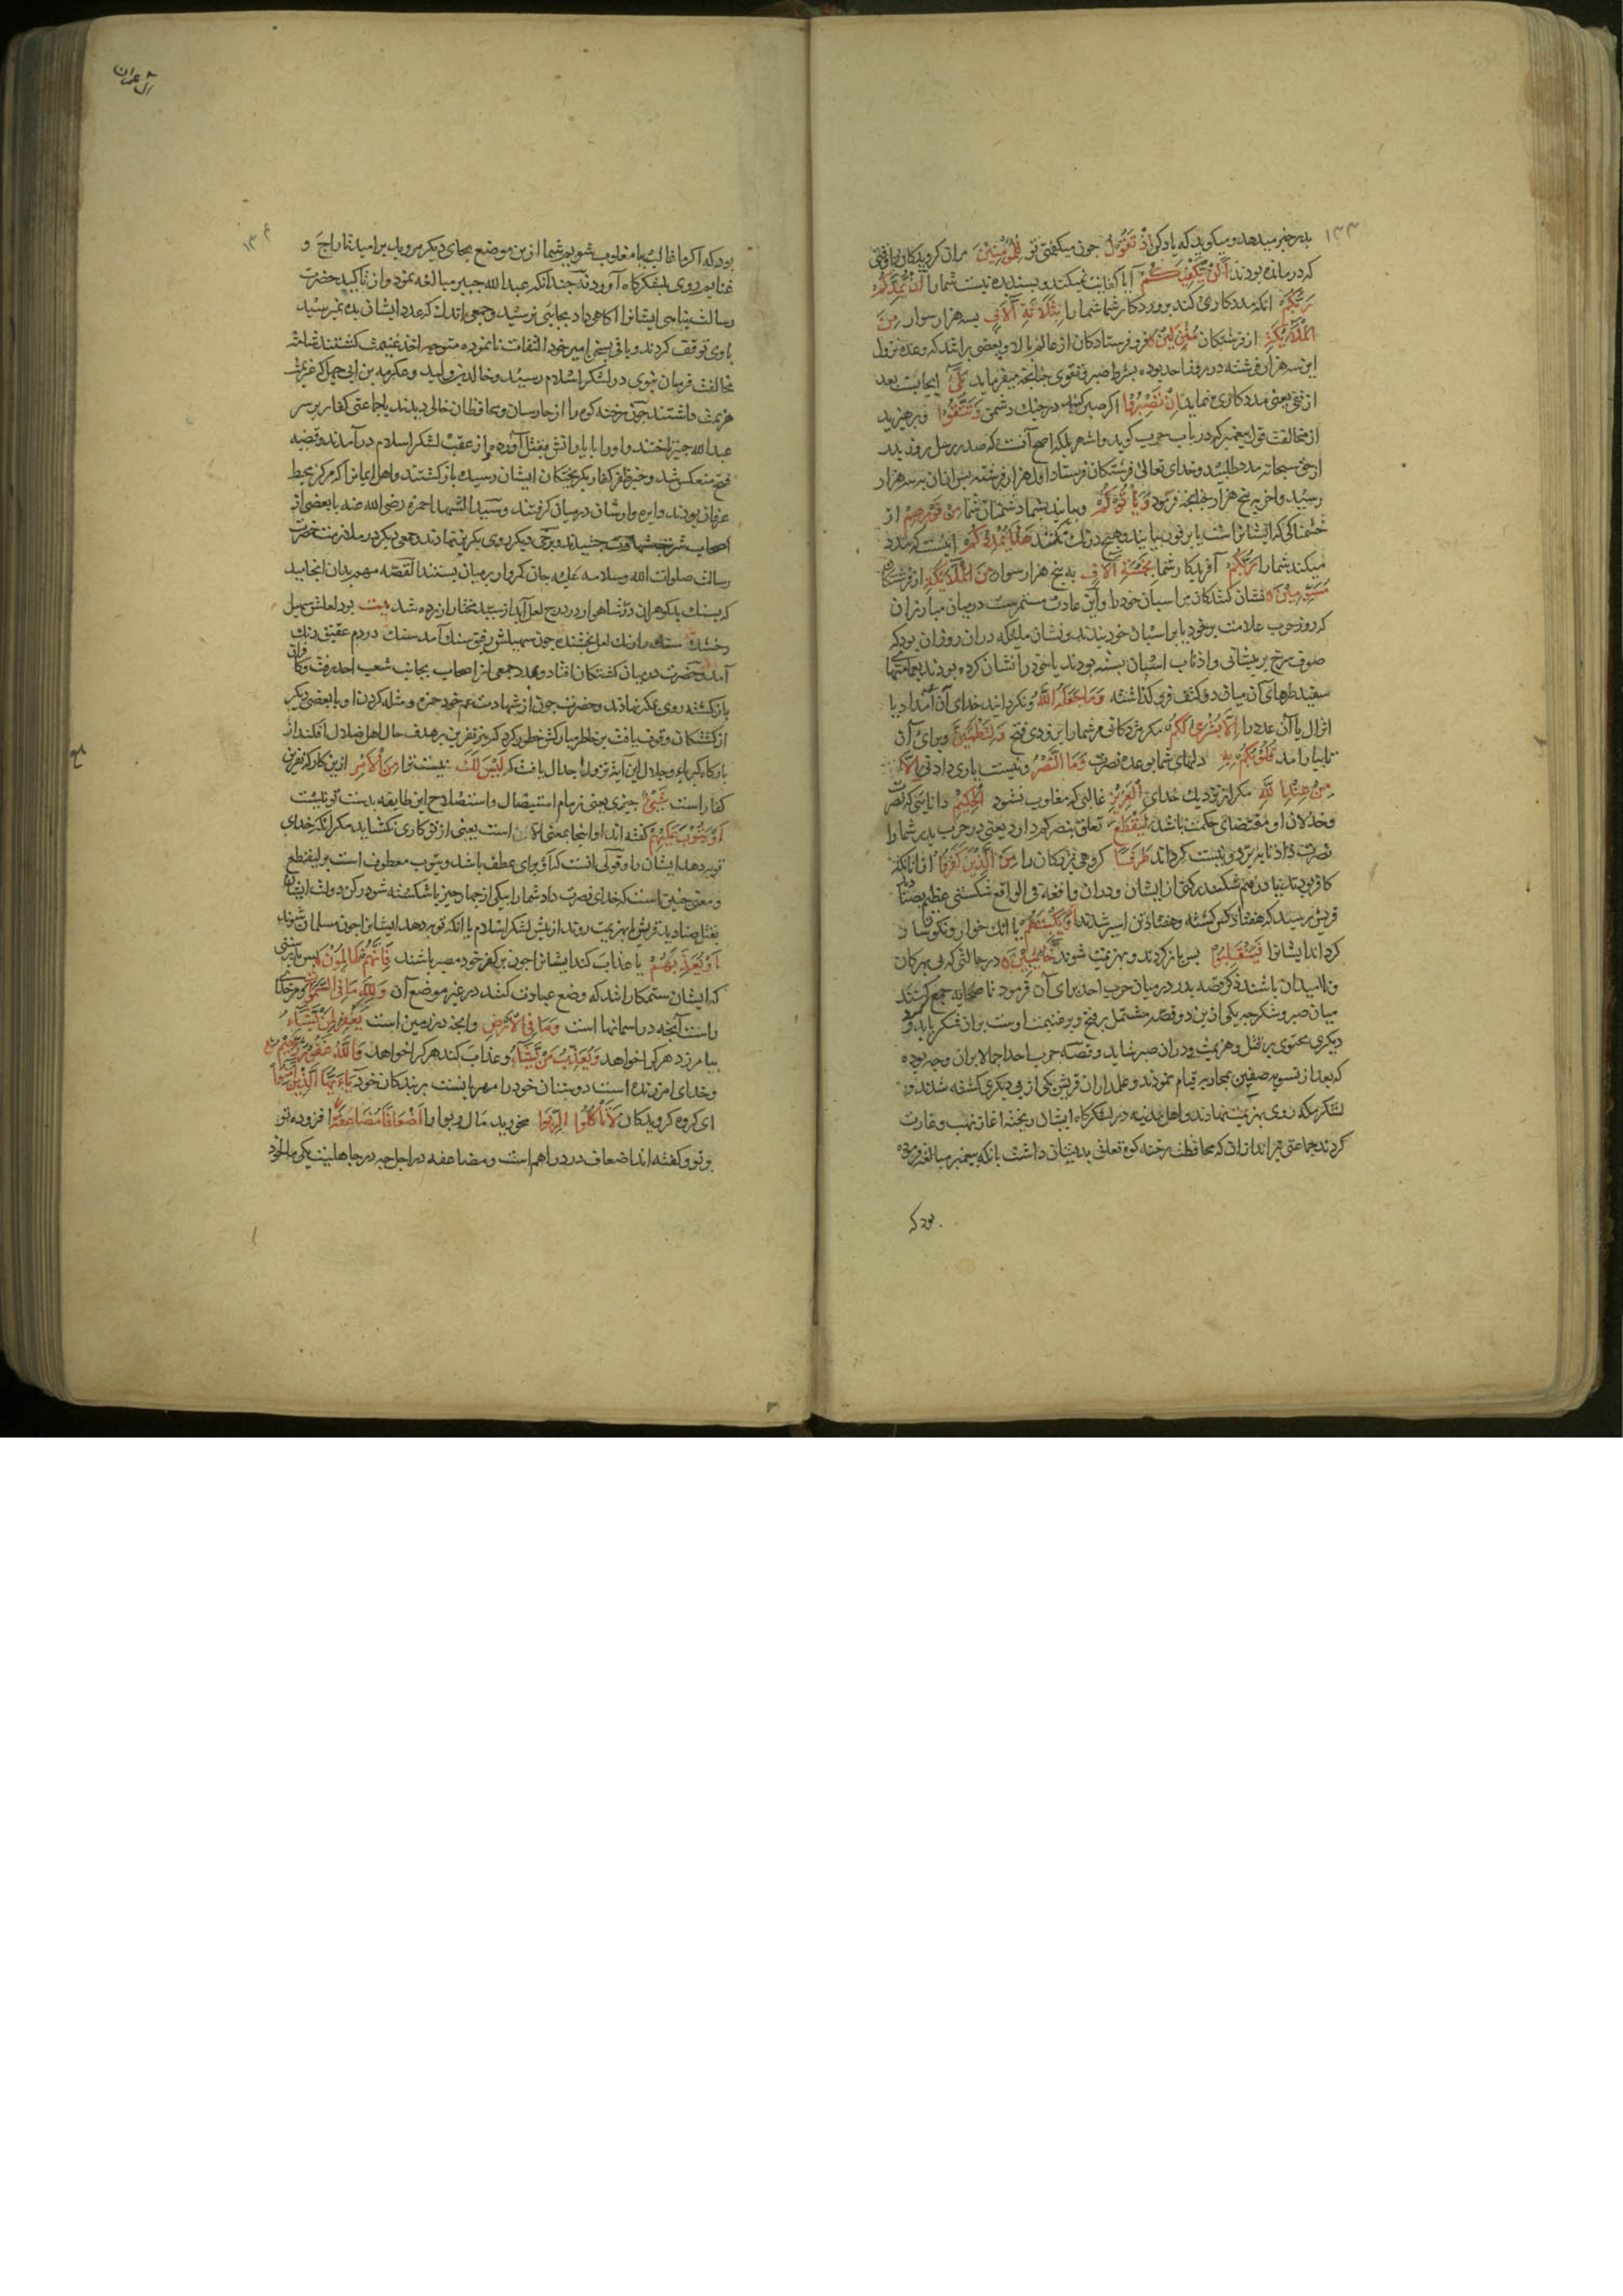 ۱۳۳
بدر خبر میدهد و میکوید که یاد کن اِذْ تَقُولُ جون میکفتی تو لِلْمُؤْمِنِیْنَ مران کرویدکانرا وقتی
که درمانده بودند اَلَنْ یَّکْفِیَکُمْ آیا کفایت نمیکند و بسنده نیست شما را اَنْ یُّمِدَّکُمْ
رَبُّکُمْ انکه مددکاری کند پروردکار شما شما را بِثَلَاثَةِ آلَافٍ بسه هزار سوار مِنَ
الْمَلَائِکَةِ از فرشتکان مُنْزَلِیْنَ فرو فرستادکان از عالم بالا و بعضی برانند که وعده نزول
این سه هزار فرشته در روز احد بوده بشرط صبر و تقوی جنانجه میفرماید بَلٰی ایجابست بعد
از نفی یعنی مددکاری نماید اِنْ تَصْبِرُوْا اکر صبر کنید در جنک دشمن وَتَتَّقُوْا و بپرهیزید
از مخالفت قول پیغمبر که در باب حرب کوید و اشهر بلکه اصح آنست که صد و بر سل روز بدر
از حق سبحانه مدد طلبید و خدای تعالی فرشتکان فرستاد اول هزار فرشته پس ازان به سه هزار
رسید و اخر به پنج هزار جنانجه فرمود وَیَأْتُوْکُمْ و بیایند بشما دشمنان شما مِنْ فَوْرِهِمْ از
خشمناکی که ایشانراست یا بر فور بیایند و هیج درنک نکنند هٰذَا یُمْدِدْکُمْ اینست که مدد
میکند شما را رَبُّکُمْ آفریدکار شما بِخَمْسَةِ آلَافٍ به پنج هزار سوار مِنَ الْمَلَائِکَةِ از فرشتکان
مُسَوِّمِیْنَ نشان کنندکان مر اسبان خود را و این عادت مستمرست درمیان مبارزان
که روز حرب علامت بر خود یا بر اسبان خود بندند و نشان ملئکه دران روز ان بود که
صوف سرخ بر پیشانی و اذناب اسبان بسته بودند یا خود را نشان کرده بودند بعمامتها
سفید طرهای آن میان دو کتف فرو کذاشته وَمَا جَعَلَهُ اللّٰهُ و نکردانید خدای آن امداد یا
انزال یا آن عدد را اِلَّا بُشْرٰی لَکُمْ مکر مژدکانی مر شما را بزودی فتح وَلِتَطْمَئِنَّ و برای آن
تا بیارامد قُلُوْبُکُمْ بِهٖ دلهای شما بوعده نصرت وَمَا النَّصْرُ و نیست یاری دادن اِلَّا
مِنْ عِنْدِ اللّٰهِ مکر از نزدیک خدای الْعَزِیْزِ غالبی که مغلوب نشود الْحَکِیْمِ دانایی که نصرت
و خذلان او مقتضای حکمت باشد لِیَقْطَعَ تعلق بنصرکم دارد یعنی در حرب بدر شما را
نصرت داد تا ببرد و نیست کرداند طَرَفًا کروهی بزرکان را مِنَ الَّذِیْنَ کَفَرُوْا از انانکه
کافر بودند تا درهم شکنند رکنی از ایشان و دران واقعه فی الواقع شکستی عظیم بصنادید
قریش رسید که هفتاد کس کشته و هفتاد تن اسیر شدند اَوْ یَکْبِتَهُمْ یا انک خوار و نکونسار
کرداند ایشانرا فَیَنْقَلِبُوْا پس باز کردند و بهزیمت شوند خَائِبِیْنَ در حالتی که بی بهرکان
و ناامیدان باشند ذکر قصه بدر درمیان حرب احد برای آن فرمود تا صحابه جمع کنند
میان صبر و شکر جه یکی ازین دو قصه مشتمل بر فتح و بر غنیمت اوست بران شکر باید کرد
دیکری محتوی بر قتل و هزیمت و دران صبر شاید و قصه حرب احد اجمالا بران وجه بوده
که بعد از تسویه صفین بمحاربه قیام نمودند و علمداران قریش یکی از پی دیکری کشته شدند و
لشکر مکه روی بهزیمت نهادند و اهل مدینه در لشکرکاه ایشان ریخته اغاز نهب و غارت
کردند جماعتی تیراندازان که محافظت رخنه کوه تعلق بدیشان داشت بانکه پیغمبر مبالغه فرموده
بود که
آل عمران
۱۳۴
بود که اکر ما غالب یا مغلوب شویم شما ازین موضع بجای دیکر مروید بر امید تاراج و
غنایم روی بلشکرکاه آوردند جندانکه عبدالله جبیر مبالغه نمود و از تاکید حضرت
رسالت پناهی ایشانرا اکاهی داد بجایی نرسید و جمعی اندک که عدد ایشان بده نمیرسید
با وی توقف کردند و باقی بسخن امیر خود التفات نانموده متوجه اخذ غنیمت کشتند شامت
مخالفت فرمان نبوی در لشکر اسلام رسید و خالد بن ولید و عکرمه بن ابی جهل که عزیمت
هزیمت داشتند جون رخنه کوه را از حارسان و محافظان خالی دیدند با جماعتی کفار بر سر
عبدالله جبیر تاختند و او را با یارانش بقتل آورده و از عقب لشکر اسلام درآمدند و قضیه
فتح منعکس شد و خبر ظفر کفار بکریختکان ایشان رسید بازکشتند و اهل ایمانرا که مرکز محیط
عرفان بودند دایره وار شان درمیان کرفتند و سید الشهدا حمزه رضی الله عنه با بعضی از
اصحاب شربت شهادت چشیدند و برخی دیکر روی بکریز نهادند و جمعی دیکر در ملازمت حضرت
رسالت صلوات الله وسلامه علیه جان کرم وار برمیان بستند القصه مهم بدان انجامید
که بسنک بدکوهران در شاهی از درج لعل آبدار سید مختار ازرده شد بیت بود لعلش سهیل
رخشنده سنک را رنک لعل بخشنده جون سهیلش رفیق سنک آمد سنک در دم عقیق رنک
آمد و حضرت درمیان کشتکان افتاد و بمدد جمعی از اصحاب بجانب شعب احد رفت و کافران
بازکشته روی بمکه نهادند و حضرت جون از شهادت عم خود حمزه و مثله کردن او با بعضی دیکر
از کشتکان وقوف یافت بر خاطر مبارکش خطور کرد که تیر نفرین بر هدف حال اهل ضلال افکند از
بارکاه کبریا و جلال این آیت نزول اجلال یافت که لَیْسَ لَکَ نیست ترا مِنَ الْاَمْرِ ازین کار که نفرین
کفار است شَیْءٌ چیزی یعنی زمام استیصال و استصلاح این طایفه بدست تو نیست
اَوْ یَتُوْبَ عَلَیْهِمْ کفته اند او اینجا بمعنی الا ان است یعنی از تو کاری نکشاید مکر آنکه خدای
توبه دهد ایشان را و قولی انست که او برای عطف باشد و یتوب معطوف است بر لیقطع
و معنی چنین است که خدای نصرت داد شما را بیکی از چهار چیز یا شکسته شود رکن دولت ایشان
بقتل صنادید قریش یا بهزیمت روند از پیش لشکر اسلام یا انکه توبه دهد ایشانرا جون مسلمان شوند
اَوْ یُعَذِّبَهُمْ یا عذاب کند ایشانرا جون بر کفر خود مصر باشند فَاِنَّهُمْ ظَالِمُوْنَ پس بدرستی
که ایشان ستمکارانند که وضع عبادت کنند در غیر موضع آن وَلِلّٰهِ مَا فِی السَّمٰوَاتِ و مر خدای
راست آنجه در اسمانها است وَمَا فِی الْاَرْضِ وانجه در زمین است یَغْفِرُ لِمَنْ یَّشَاءُ
بیامرزد هر کرا خواهد وَیُعَذِّبُ مَنْ یَّشَاءُ و عذاب کند هر کرا خواهد وَاللّٰهُ غَفُوْرٌ رَّحِیْمٌ
و خدای امرزنده است دوستان خود را مهربانست بر بندکان خود یٰٓاَیُّهَا الَّذِیْنَ اٰمَنُوْا
ای کروه کرویدکان لَا تَأْکُلُوا الرِّبٰوا مخورید مال ربوا را اَضْعَافًا مُّضَاعَفَةً افزوده تو
بر تو و کفته اند اضعاف در دراهم است و مضاعفه در اجل جه در جاهلیت یکی مال خود